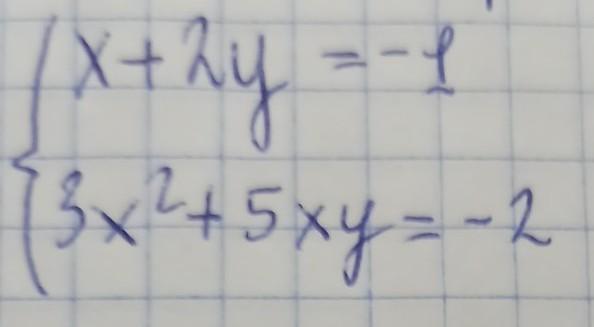 x + 2y = -1
3x² + 5xy = -2